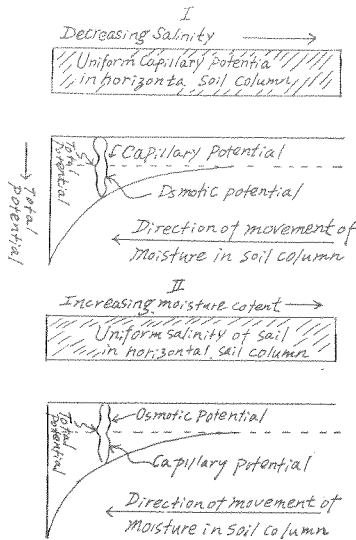 I
Decreasing Salinity
Uniform Capillary Potential
in horizonta soil column
Capillary Potential
Total
Potential
Osmotic potential
Total
Potential
Direction of movement of
Moisture in soil column
II
Increasing moisture cotent
Uniform salinity of sail
in horizontal sail column
Osmotic Potential
Total
Potential
Capillary Potential
Direction of movement of
Moisture in soil column